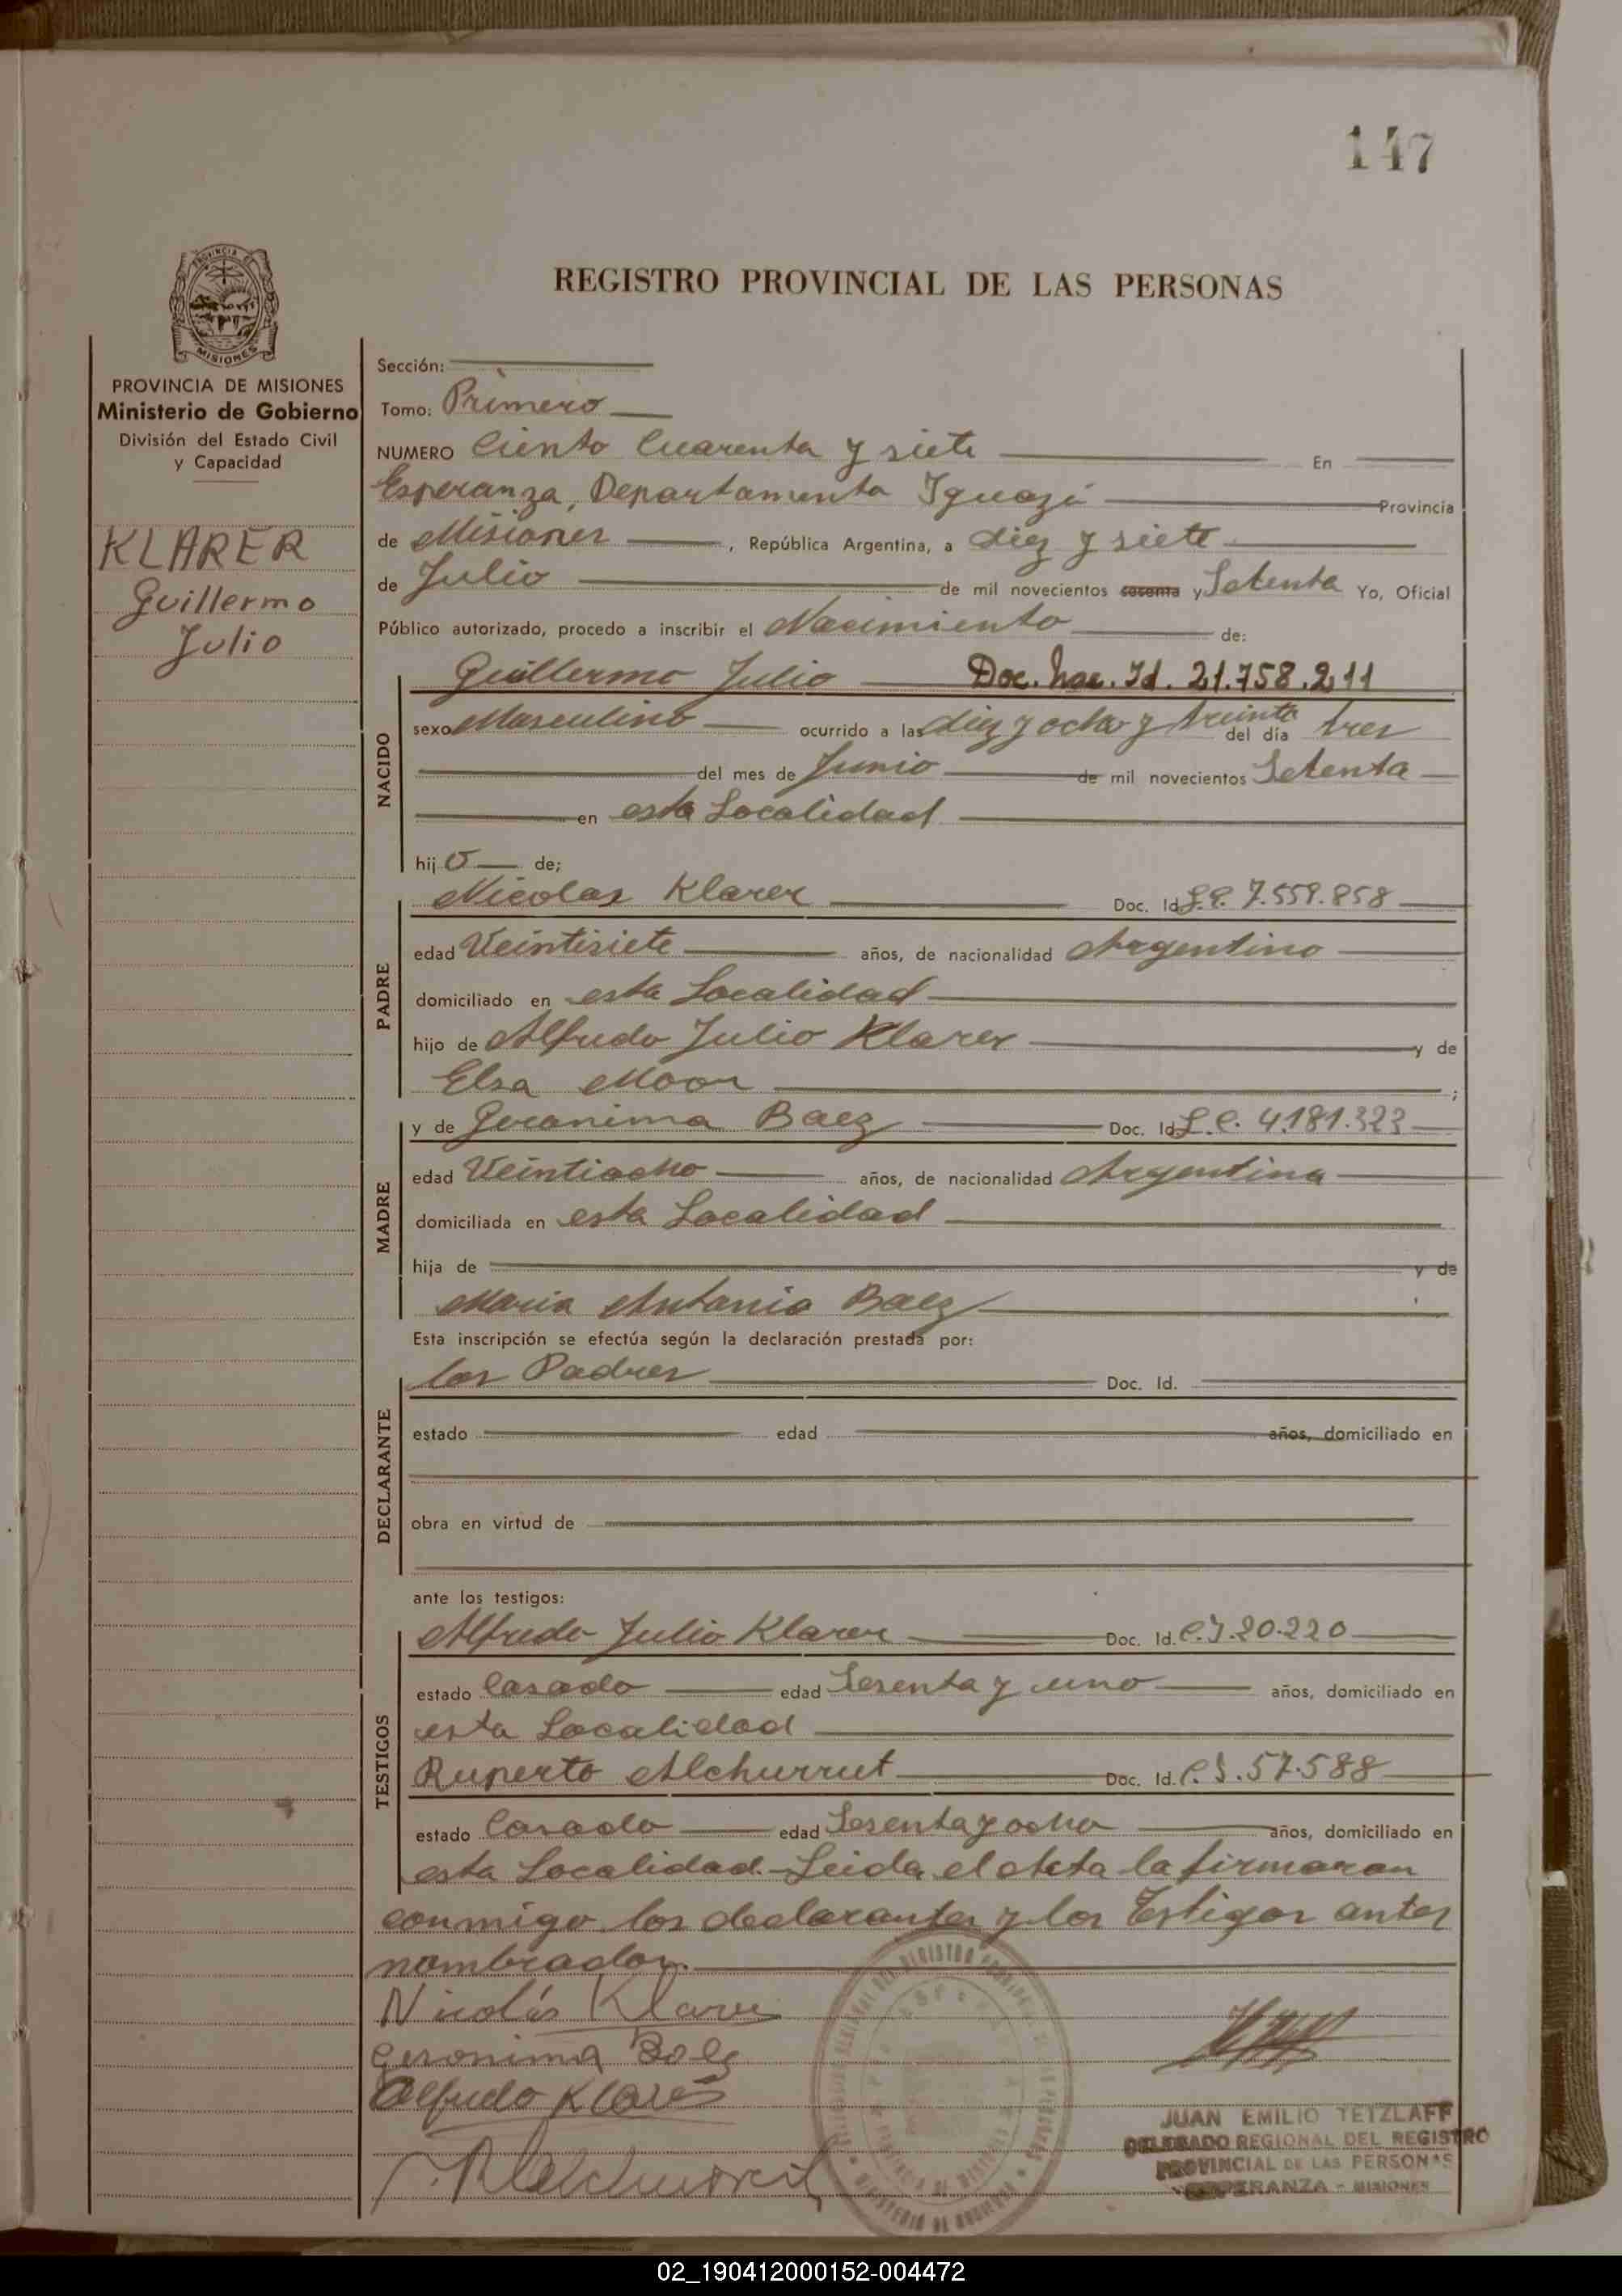 147
PROVINCIA DE
MISIONES
REGISTRO PROVINCIAL DE LAS PERSONAS
PROVINCIA DE MISIONES
Ministerio de Gobierno
División del Estado Civil
y Capacidad
KLARER
Guillermo
Julio
Sección:
Tomo: Primero
NUMERO Ciento Cuarenta y siete En
Esperanza, Departamento Iguazú Provincia
de Misiones, República Argentina, a diez y siete
de Julio de mil novecientos sesenta y Setenta Yo, Oficial
Público autorizado, procedo a inscribir el Nacimiento de:
NACIDO
Guillermo Julio Doc. Nac. Id. 21.758.211
sexo Masculino ocurrido a las diez y ocho y treinta del día tres
del mes de Junio de mil novecientos Setenta
en esta Localidad
hijo de;
PADRE
Nicolas Klarer Doc. Id. L.E. 7.559.858
edad Veintisiete años, de nacionalidad Argentino
domiciliado en esta Localidad
hijo de Alfredo Julio Klarer y de
Elsa Moor ;
MADRE
y de Geronima Baez Doc. Id. L.C. 4.181.323
edad Veintiocho años, de nacionalidad Argentina
domiciliada en esta Localidad
hija de y de
Maria Antonia Baez
Esta inscripción se efectúa según la declaración prestada por:
DECLARANTE
los Padres Doc. Id.
estado edad años, domiciliado en
obra en virtud de
ante los testigos:
TESTIGOS
Alfredo Julio Klarer Doc. Id. C.I. 20.220
estado Casado edad Sesenta y uno años, domiciliado en
esta Localidad
Ruperto Alchurrut Doc. Id. C.I. 57.588
estado Casado edad Sesenta y ocho años, domiciliado en
esta Localidad.-Leida el acta la firmaran
conmigo los declarantes y los Testigos antes
nombrados.
Nicolás Klarer
Geronima Baez
Alfredo Klarer
JUAN EMILIO TETZLAFF
DELEGADO REGIONAL DEL REGISTRO
PROVINCIAL DE LAS PERSONAS
ESPERANZA - MISIONES
02_190412000152-004472